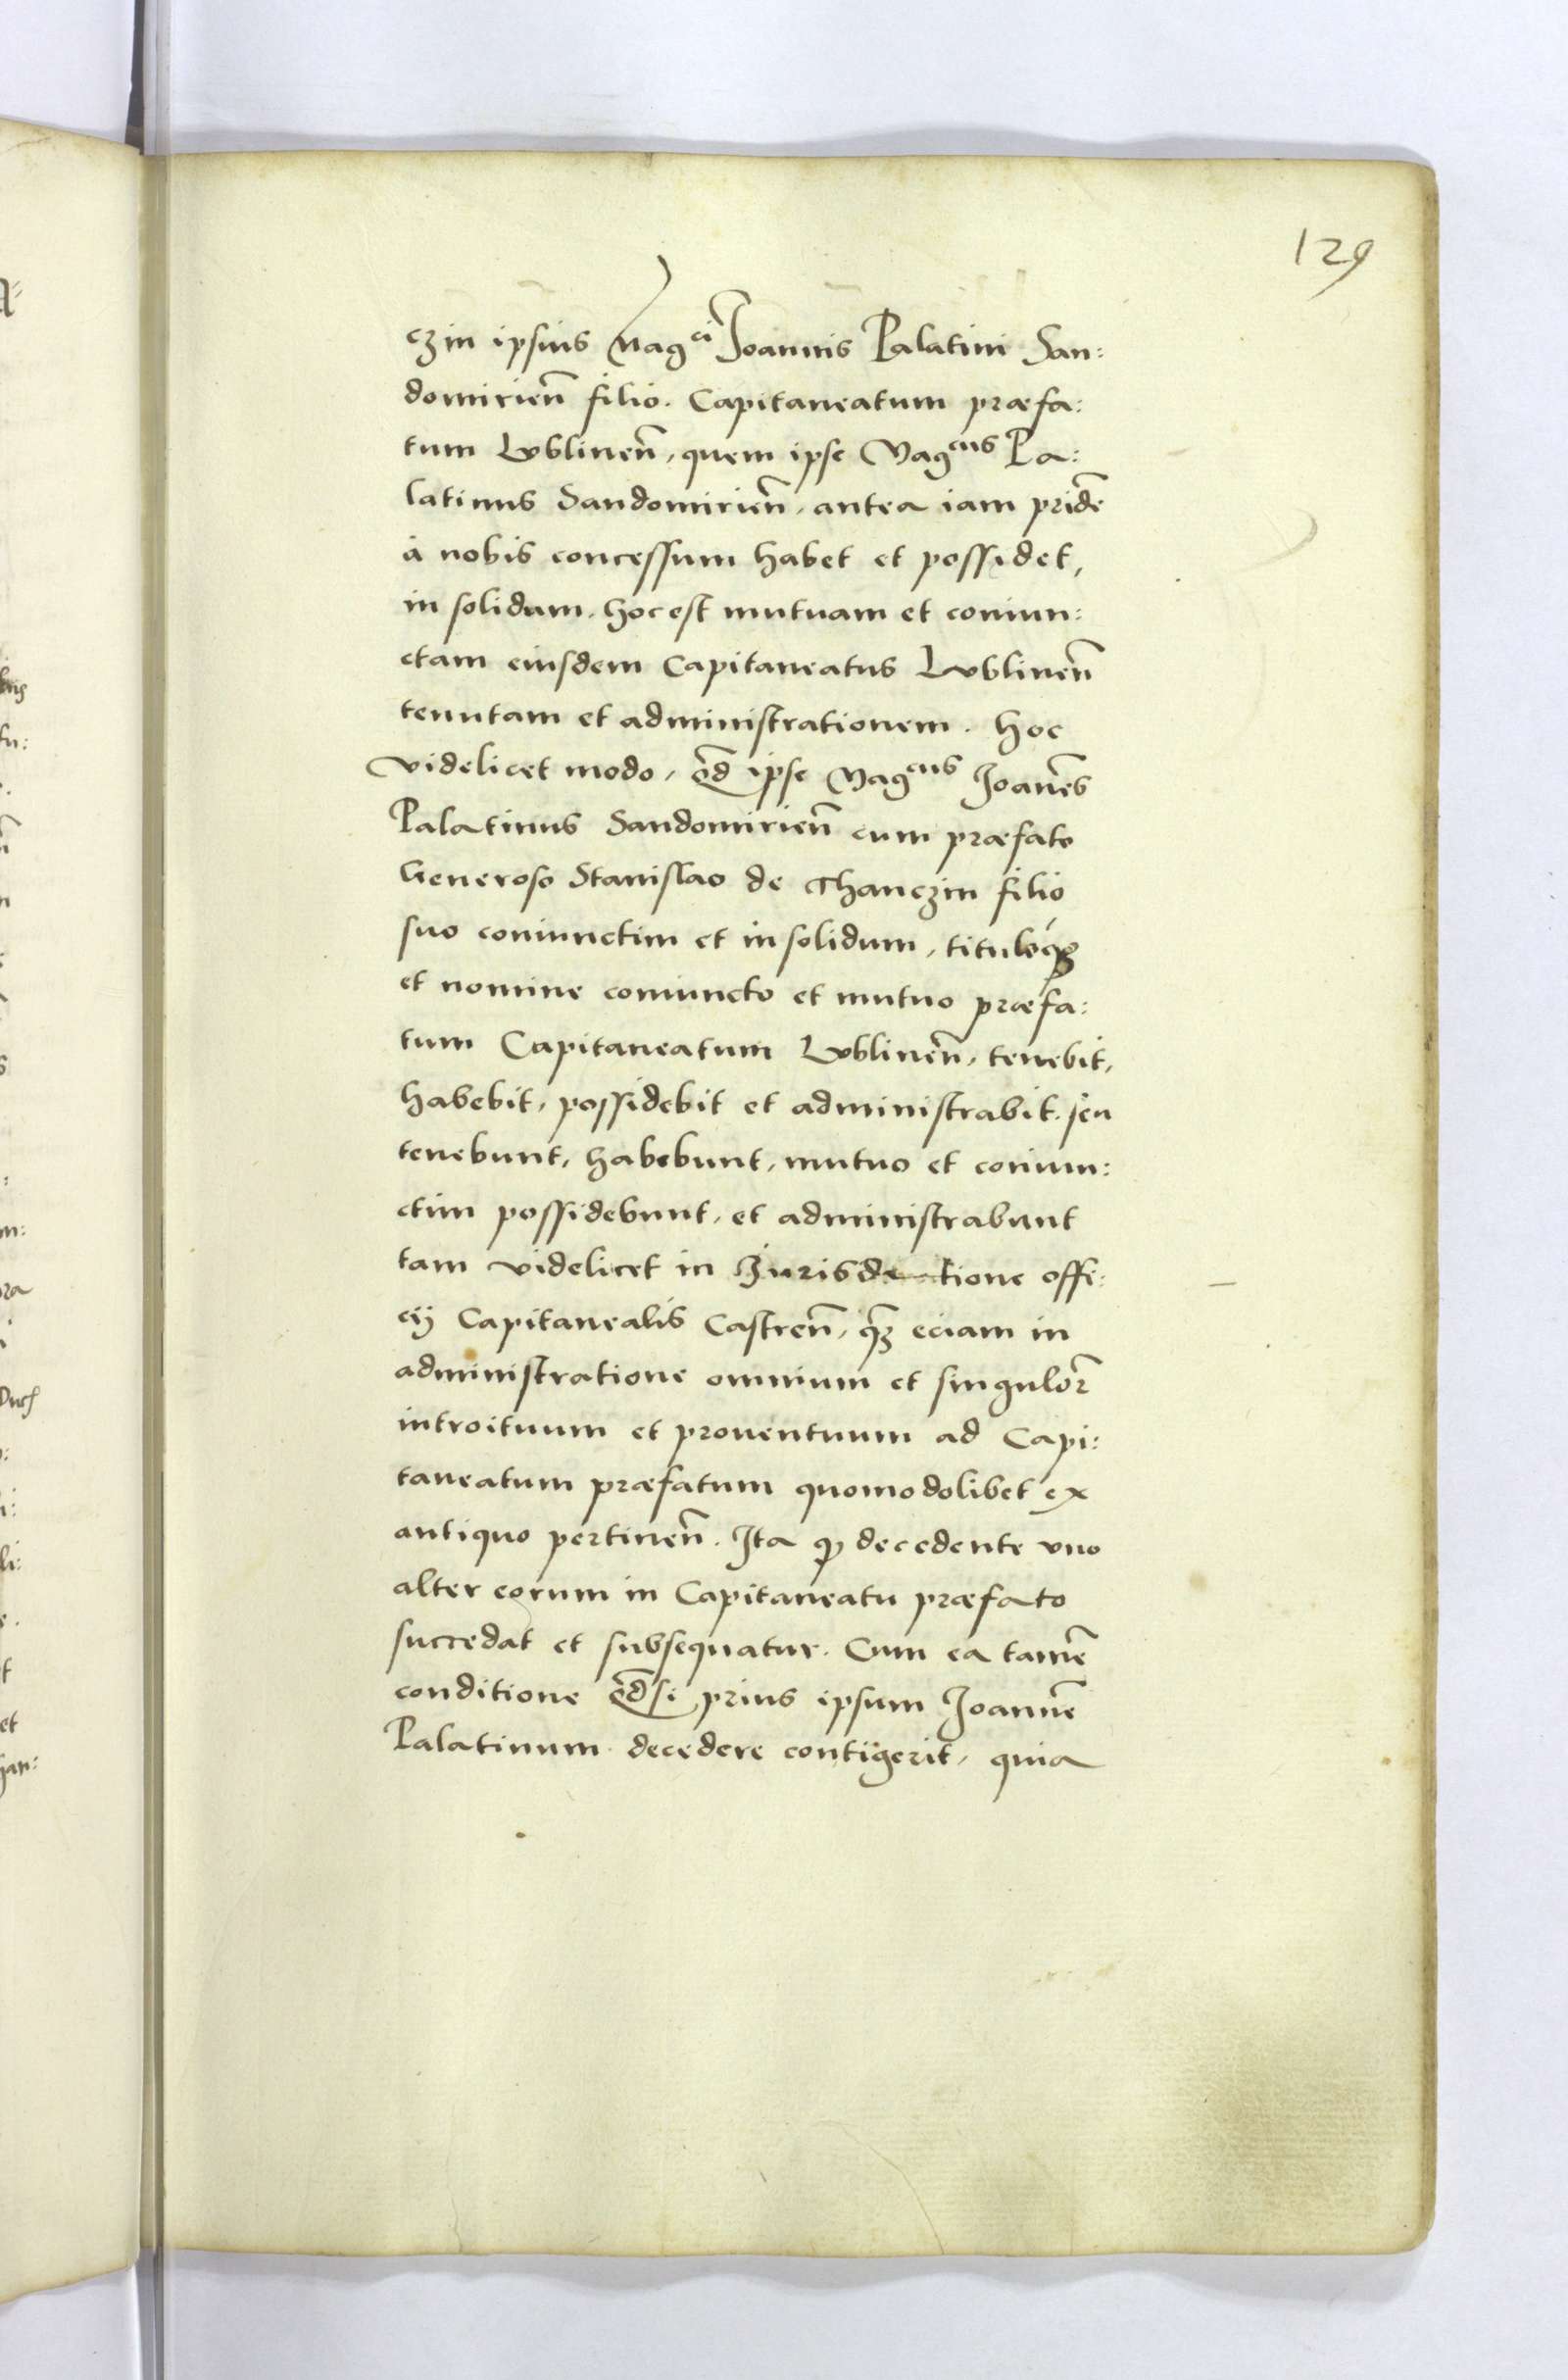 129
czin ipsius Mag<sup>ci</sup> Joannis Palatini San:
domirieñ filio. Capitaneatum præfa:
tum Lublineñ, quem ipse Mag<sup>cus</sup> Pa:
latinus Sandomirieñ, antea iam pridẽ
à nobis concessum habet et possidet,
in solidum, hoc est mutuam et coniun:
ctam eiusdem Capitaneatus Lublineñ
tenutam et administrationem. Hoc
videlicet modo, qd̃ ipse Mag<sup>cus</sup> Joanẽs
Palatinus Sandomirieñ cum præfato
Generoso Stanislao de Thanczin filio
suo coniunctim et in solidum, tituloq́ꝫ
et nomine coniuncto et mutuo præfa:
tum Capitaneatum Lublineñ, tenebit,
habebit, possidebit et administrabit. seu
tenebunt, habebunt, mutuo et coniun:
ctim possidebunt, et administrabunt
tam videlicet in Jurisdictione offi:
cij Capitanealis Castreñ, q̃ꝫ eciam in
administratione omnium et singulor̃
introituum et prouentuum ad Capi:
taneatum præfatum quomodolibet ex
antiquo pertineñ. Ita ꝙ decedente vno
alter eorum in Capitaneatu præfato
succedat et subsequatur. Cum ea tamẽ
conditione qd̃ si prius ipsum Joannẽ
Palatinum decedere contigerit, quia